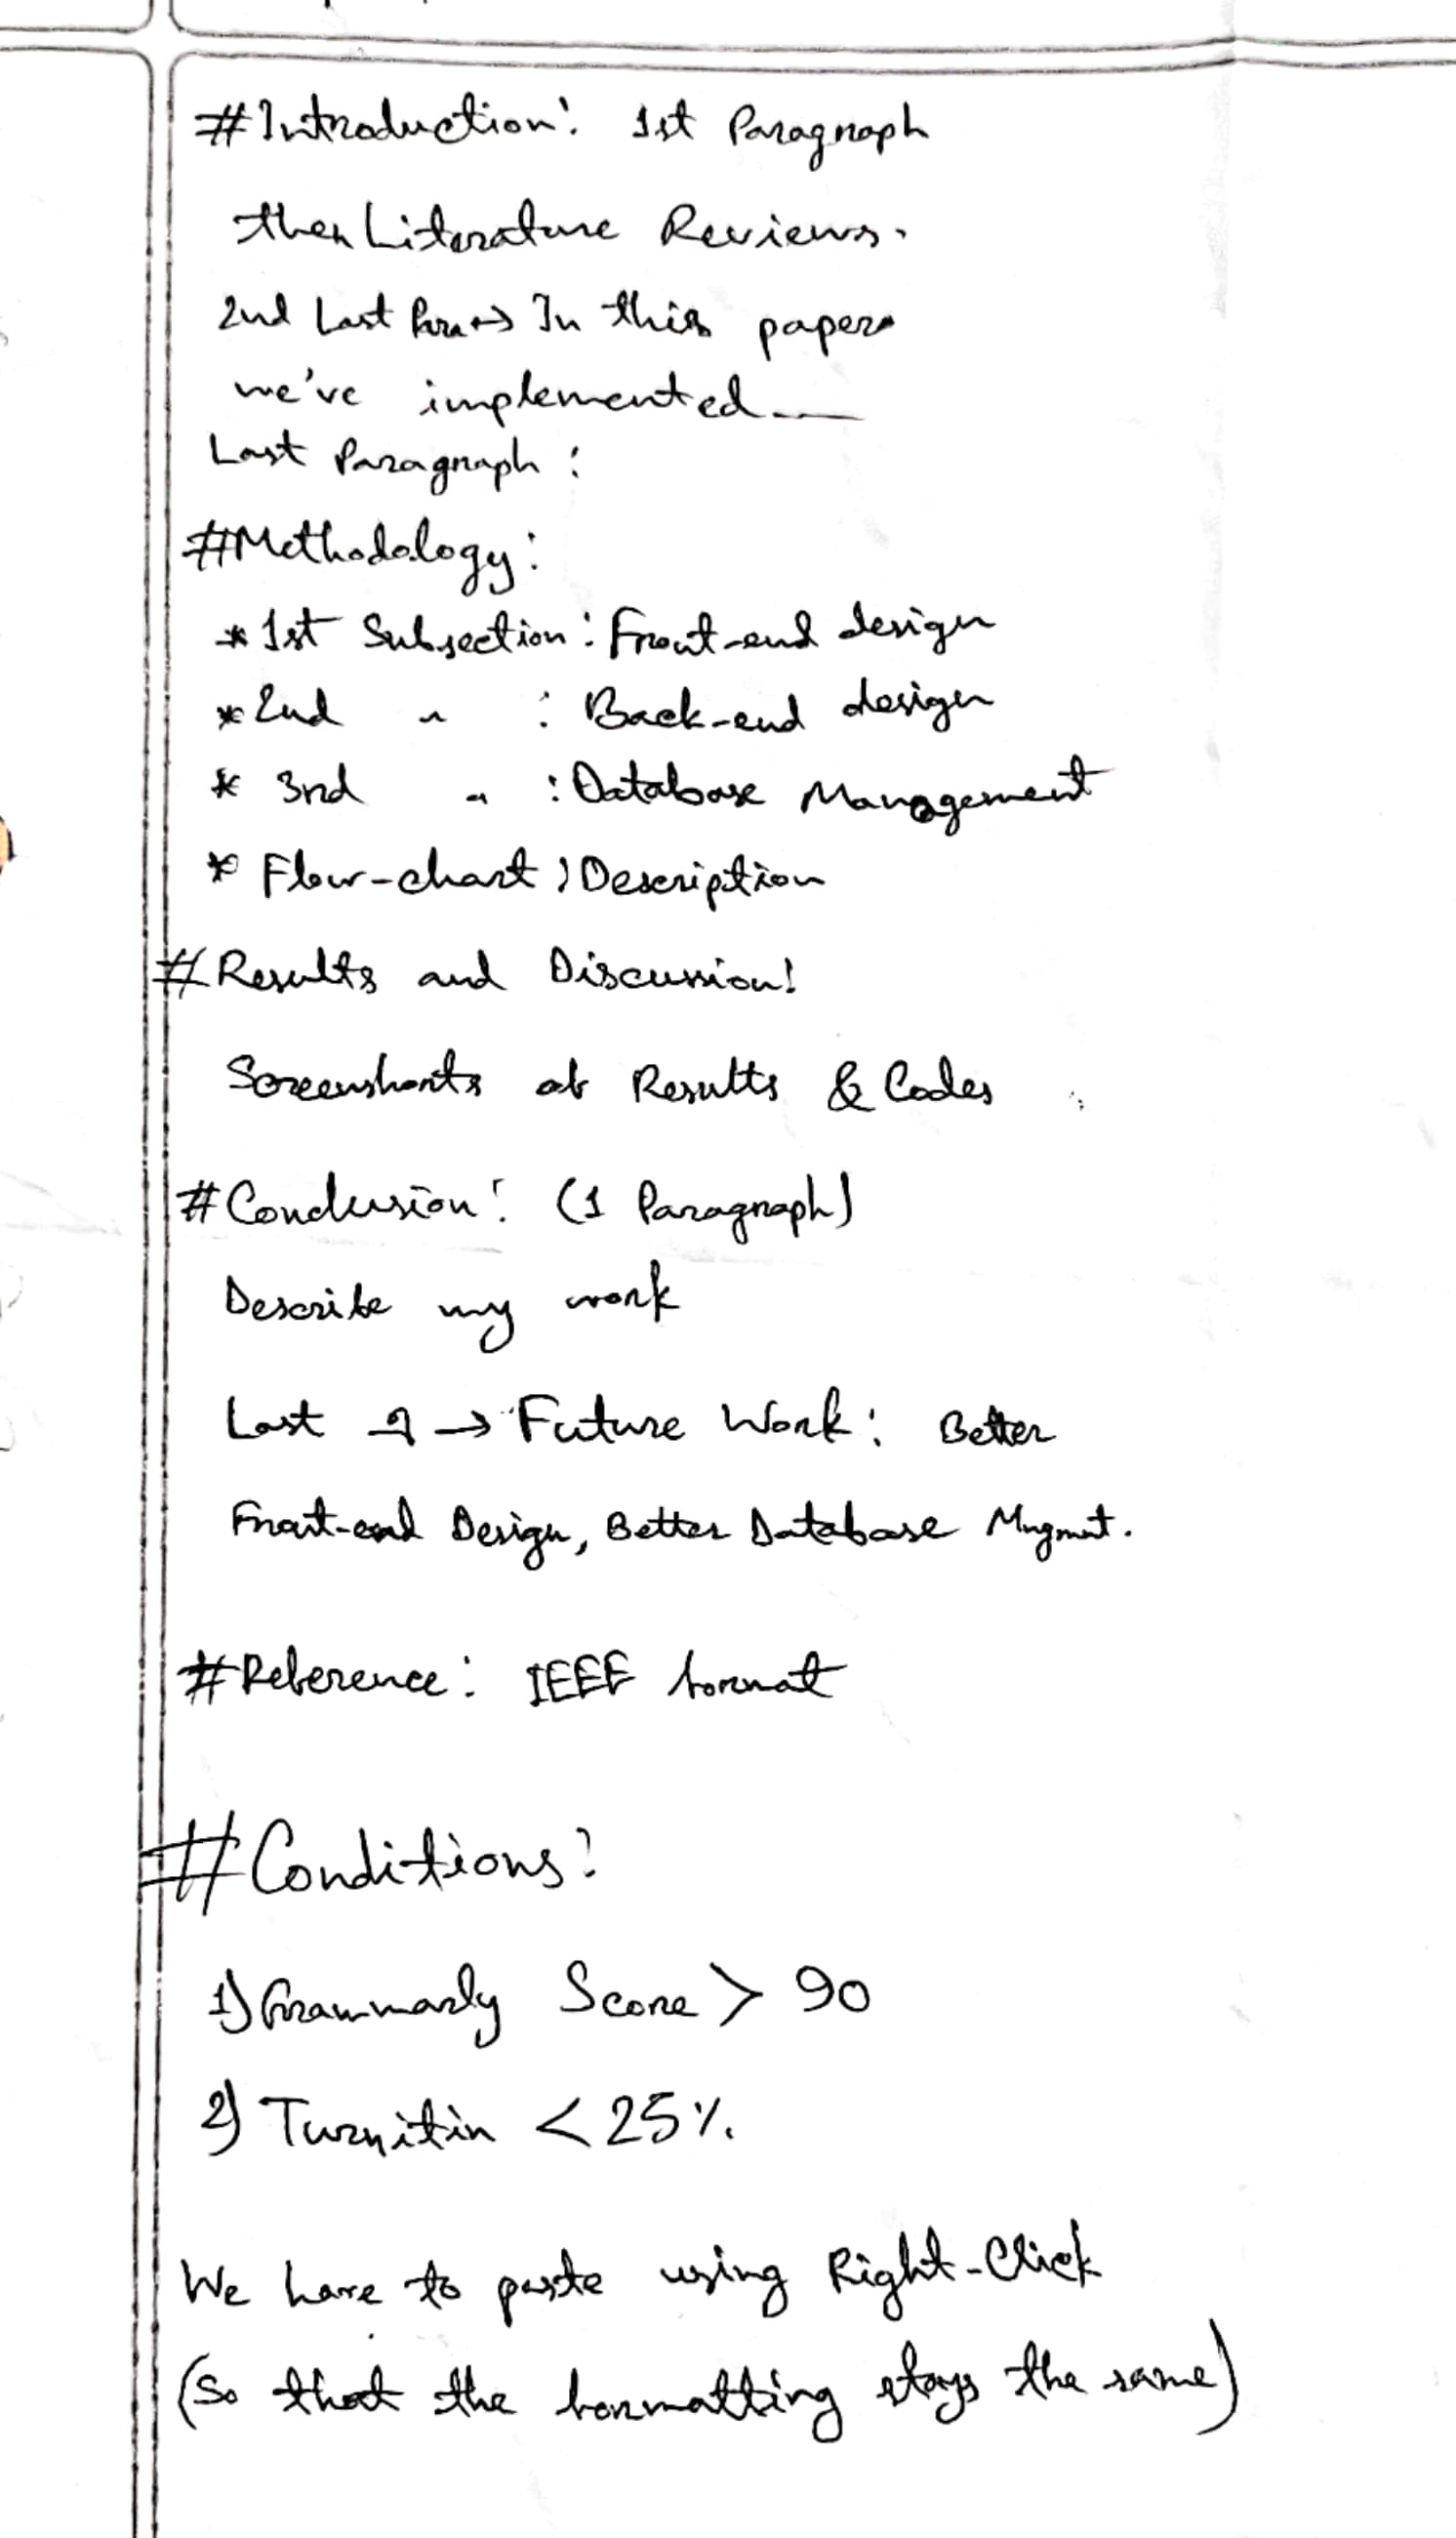 #Introduction: 1st Paragraph
then Literature Reviews.
2nd Last Para → In this paper
we've implemented __
Last Paragraph :
#Methodology:
* 1st Subsection : Front-end design
* 2nd " : Back-end design
* 3rd " : Database Management
* Flow-chart : Description
#Results and Discussion:
Screenshorts of Results & Codes
#Conclusion: (1 Paragraph)
Describe my work
Last → Future Work: Better
Front-end Design, Better Database Mngmnt.
#Reference: IEEE format
#Conditions:
1) Grammarly Score > 90
2) Turnitin < 25%
We have to paste using Right-Click
(So that the formatting stays the same)